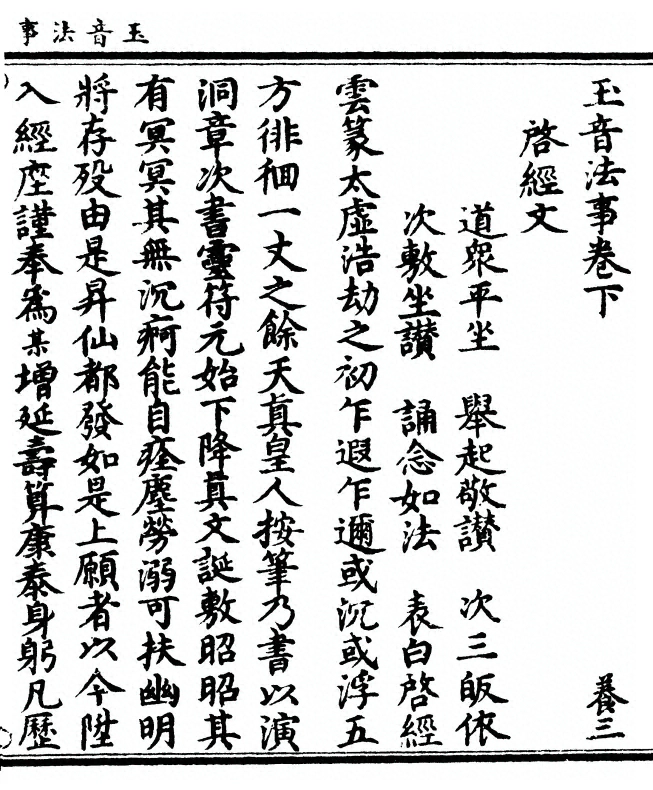 玉音法事
玉音法事卷下　養三
啓經文
道眾平坐　舉起敬讃　次三皈依
次敷坐讃　誦念如法　表白啓經
雲篆太虛浩劫之初乍遐乍邇或沉或浮五
方徘徊一丈之餘天真皇人按筆乃書以演
洞章次書靈符元始下降真文誕敷昭昭其
有冥冥其無沉痾能自痊塵勞溺可扶幽明
將存歿由是昇仙都發如是上願者以今陞
入經座謹奉為某增延壽算康泰身躬凡歷